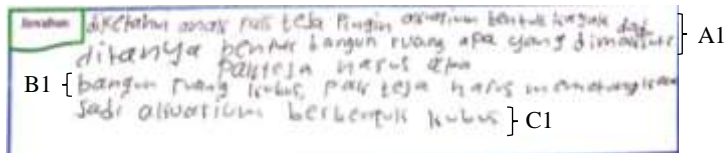 Jawaban diketahui anak pak teja ingin akuarium bentuk kayak dadu A1
ditanya bentuk bangun ruang apa yang dimaksud
pak teja harus apa
B1 bangun ruang kubus, pak teja harus
Jadi akuarium berbentuk kubus C1